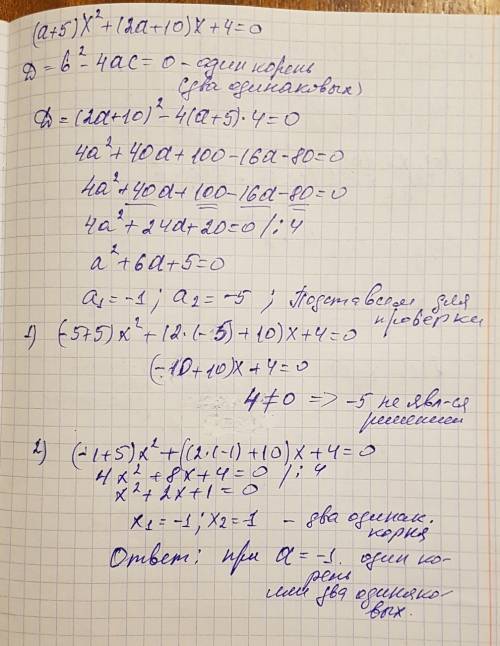 (a+5)x²+(2a+10)x+4=0
Д=b²-4ac=0 - один корень
(два одинаковых)
Д=(2a+10)²-4(a+5)·4=0
4a²+40a+100-16a-80=0
4a²+40a+100-16a-80=0
4a²+24a+20=0 /:4
a²+6a+5=0
a₁=-1; a₂=-5; Подставим для
проверки
1) (-5+5)x²+(2·(-5)+10)x+4=0
(-10+10)x+4=0
4≠0 => -5 не явл-ся
решением
2) (-1+5)x²+((2·(-1)+10)x+4=0
4x²+8x+4=0 /:4
x²+2x+1=0
x₁=-1; x₂=-1 - два одинак.
корня
Ответ: при a=-1. один ко-
рень
или два одинако-
вых.